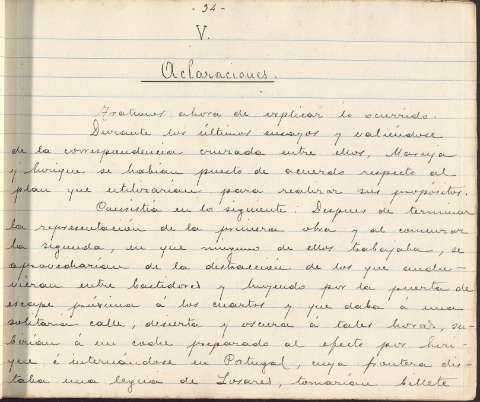 - 34 -
V.
Aclaraciones.
Tratemos ahora de explicar lo ocurrido.
Durante los últimos ensayos y valiéndose
de la correspondencia cruzada entre ellos, Maruja
y Enrique se habían puesto de acuerdo respecto al
plan que utilizarían para realizar sus propósitos.
Consistía en lo siguiente. Despues de terminar
la representación de la primera obra y al comenzar
la segunda, en que ninguno de ellos trabajaba, se
aprovecharían de la distracción de los que andu-
vieran entre bastidores y huyendo por la puerta de
escape próxima á los cuartos y que daba á una
solitaria calle, desierta y oscura á tales horas, su-
birían á un coche preparado al efecto por Enri-
que é internándose en Portugal, cuya frontera dis-
taba una legua de Losares, tomarían billete